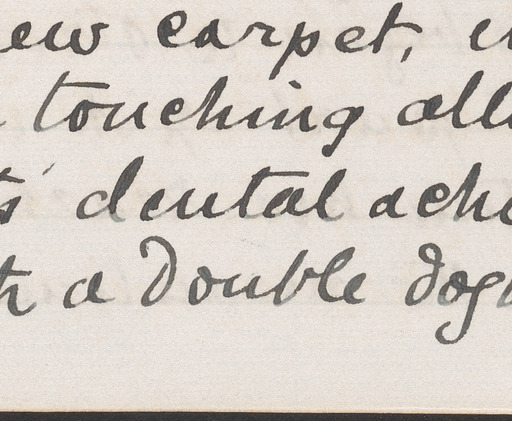 ew carpet,
touching all
s' dental ach
h a double dog